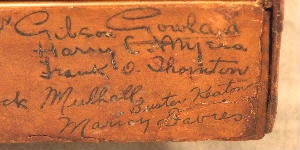 Gibson Gowland
Harry C. Myers
Frank O. Thornton
ck Mulhall Buster Keaton
Marion Davies